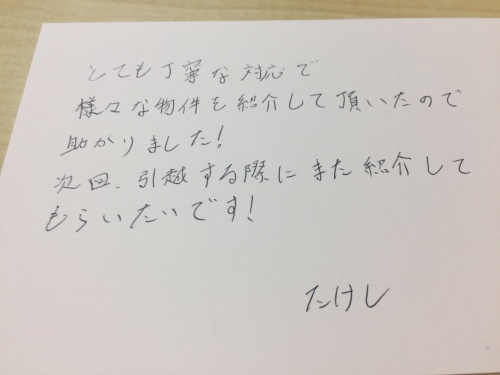 とても丁寧な対応で
様々な物件を紹介して頂いたので
助かりました!
次回、引越する際にまた紹介して
もらいたいです!
たけし